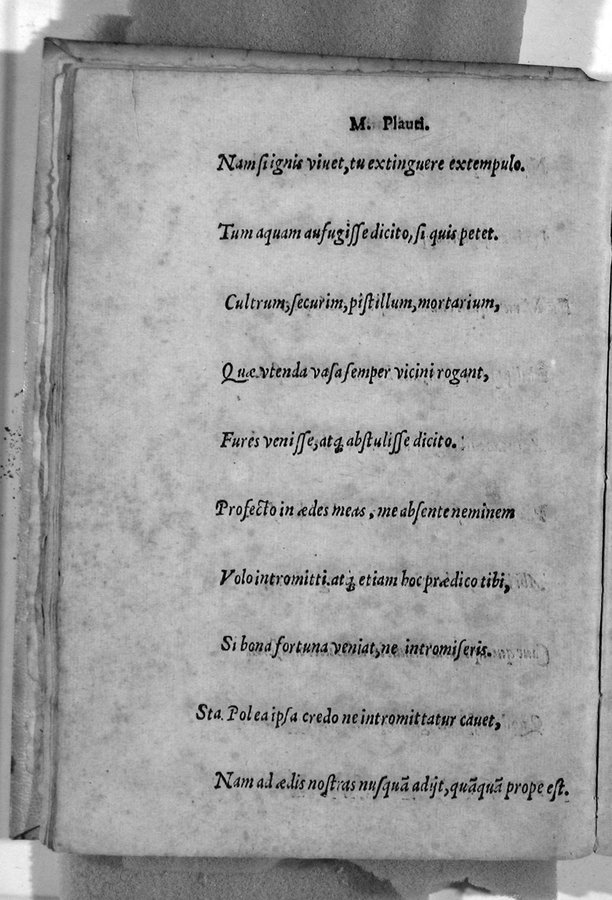 M. Plauti.
Nam si ignis viuet, tu extinguere extempulo.
Tum aquam aufugisse dicito, si quis petet.
Cultrum, securim, pistillum, mortarium,
Quæ vtenda vasa semper vicini rogant,
Fures venisse, atq; abstulisse dicito.
Profecto in ædes meas, me absente neminem
Volo intromitti. atq; etiam hoc prædico tibi,
Si bona fortuna veniat, ne intromiseris.
Sta. Pol ea ipsa credo ne intromittatur cauet,
Nam ad ædis nostras nusquā adijt, quāquā prope est.